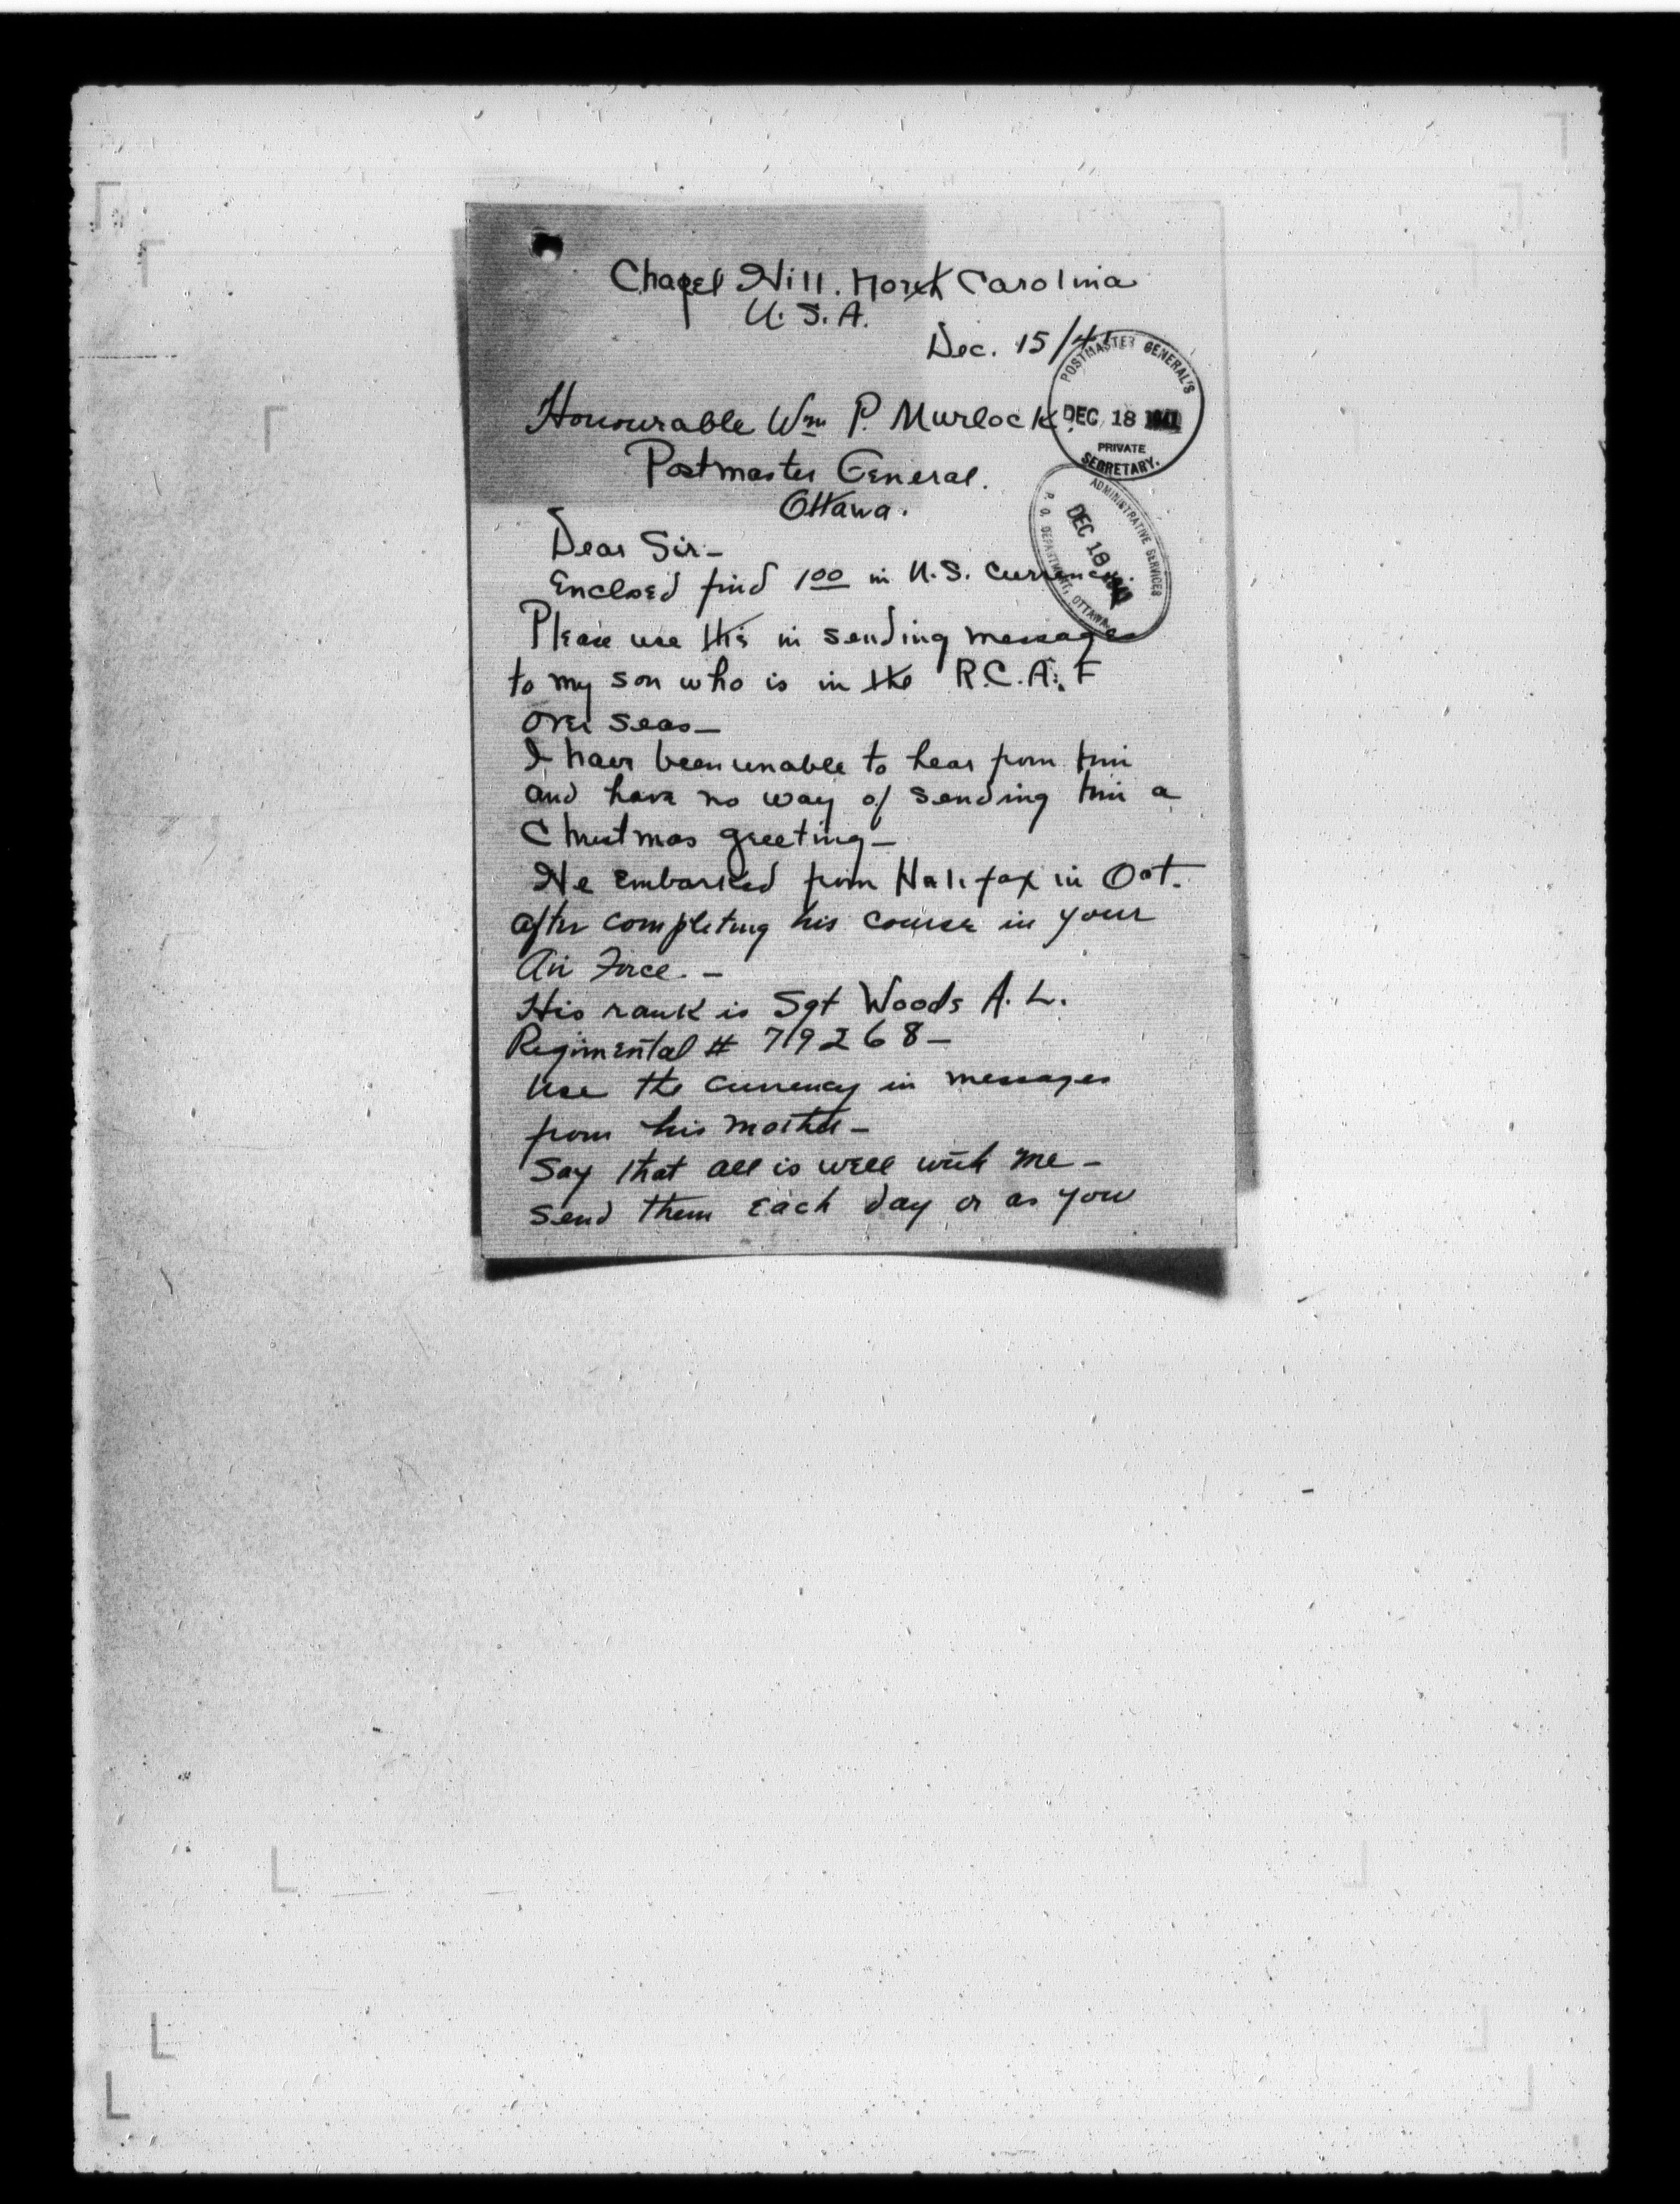 Chapel Hill. North Carolina
U.S.A.
Dec. 15/41
POSTMASTER GENERAL'S
DEC 18 1941
PRIVATE
SECRETARY.
Honourable Wm P. Murlock.
Postmaster General.
Ottawa.
ADMINISTRATIVE SERVICES
DEC 18 1941
P. O. DEPARTMENT, OTTAWA
Dear Sir-
Enclosed find 100 in U.S. Currency.
Please use this in sending messages
to my son who is in the R.C.A.F
over seas-
I have been unable to hear from him
and have no way of sending him a
Christmas greeting-
He embarked from Halifax in Oct.
after completing his course in your
Air Force. -
His rank is Sgt Woods A. L.
Regimental # 719268-
Use the currency in messages
from his mother-
Say that all is well with me-
Send them each day or as you